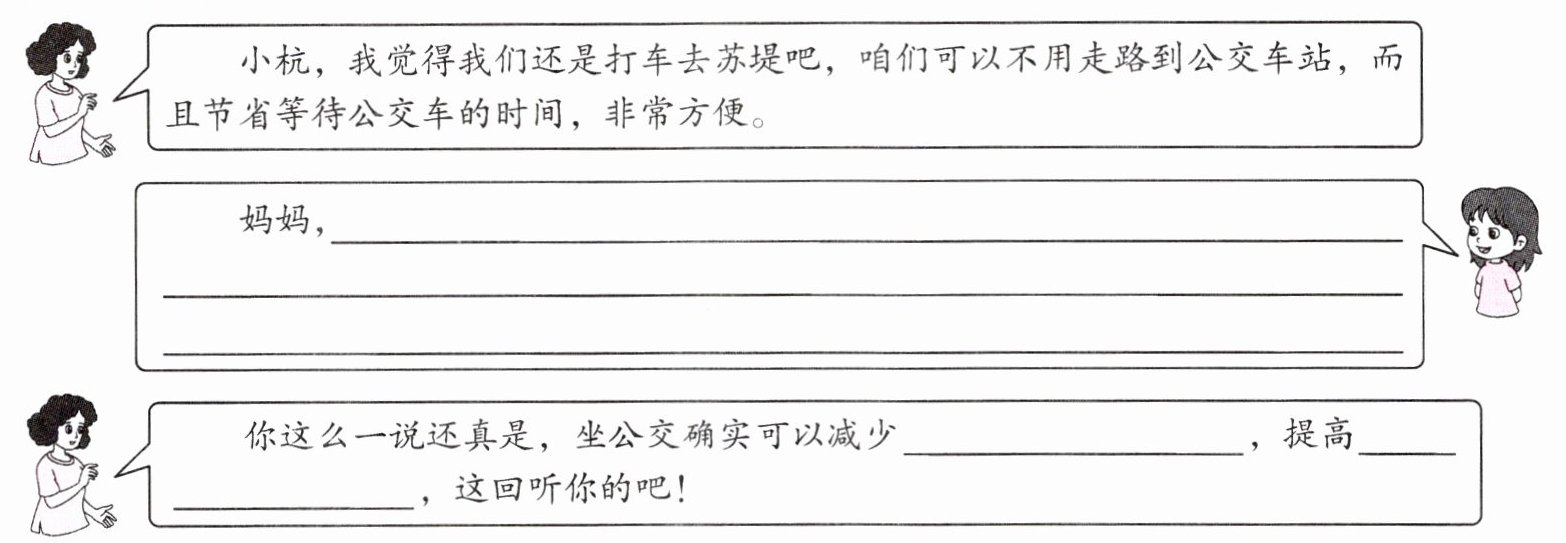 小杭，我觉得我们还是打车去苏堤吧，咱们可以不用走路到公交车站，而
且节省等待公交车的时间，非常方便。
妈妈，
你这么一说还真是，坐公交确实可以减少　　　　，提高
，这回听你的吧！